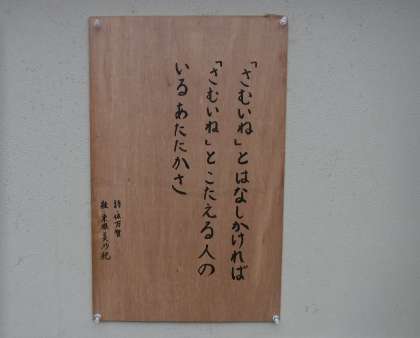 「さむいね」とはなしかければ
「さむいね」とこたえる人の
いるあたたかさ
詩 俵万智